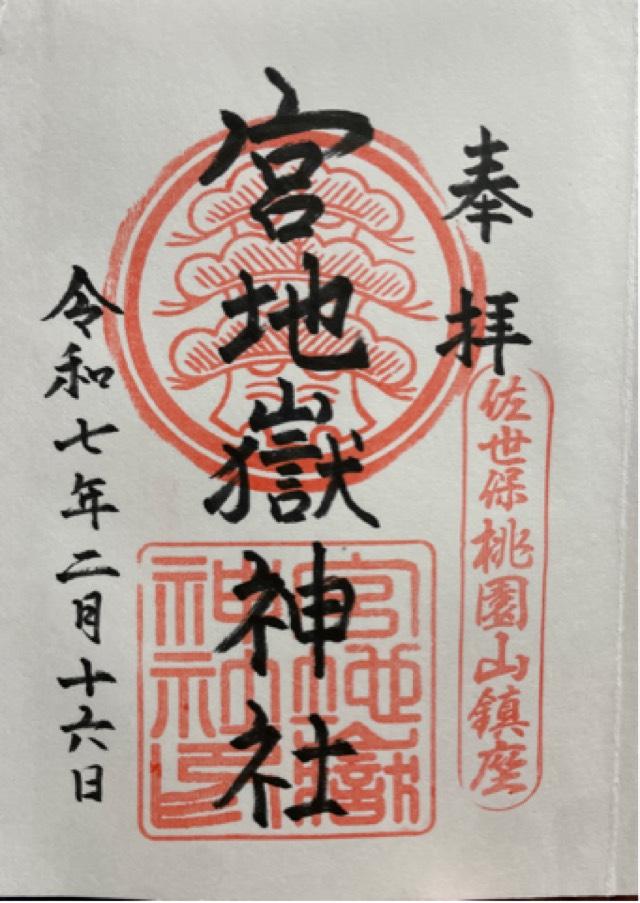 奉拝
佐世保桃園山鎮座
宮地嶽神社
宮地嶽神社印
令和七年二月十六日